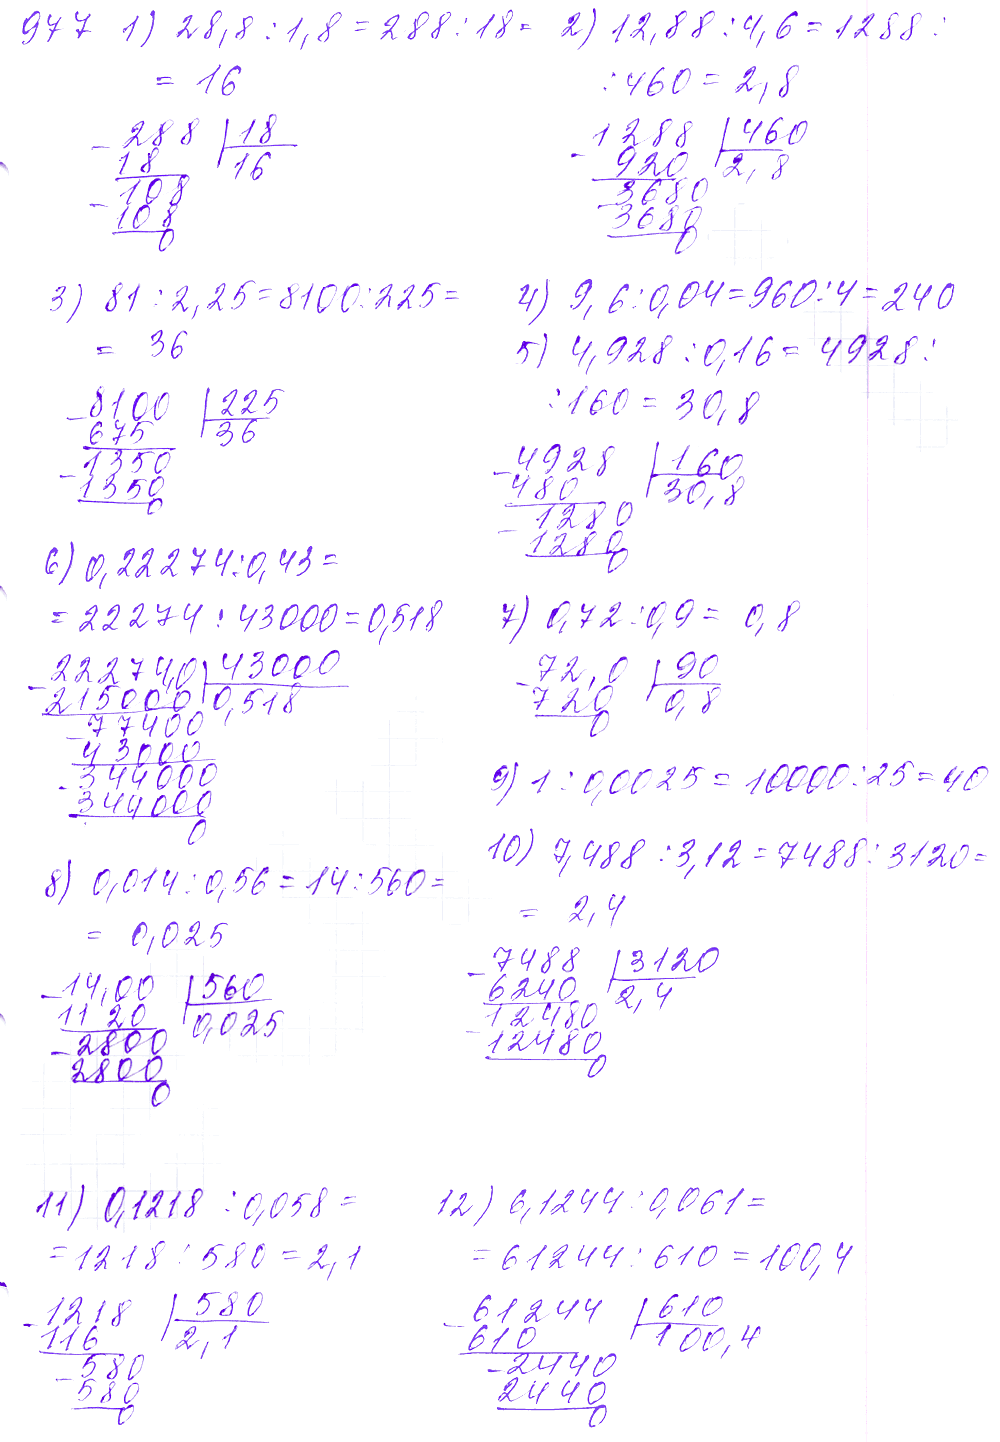 977 1) 28,8 : 1,8 = 288 : 18 =
= 16
- 288 | 18
18 16
- 108
108
0
2) 12,88 : 4,6 = 1288 :
: 460 = 2,8
- 1288 | 460
920 2,8
- 3680
3680
0
3) 81 : 2,25 = 8100 : 225 =
= 36
- 8100 | 225
675 36
- 1350
1350
0
4) 9,6 : 0,04 = 960 : 4 = 240
5) 4,928 : 0,16 = 4928 :
: 160 = 30,8
- 4928 | 160
480 30,8
- 1280
1280
0
6) 0,22274 : 0,43 =
= 22274 : 43000 = 0,518
- 22274,0 | 43000
215000 0,518
- 77400
43000
- 344000
344000
0
7) 0,72 : 0,9 = 0,8
- 72,0 | 90
720 0,8
0
8) 0,014 : 0,56 = 14 : 560 =
= 0,025
- 14,00 | 560
1120 0,025
- 2800
2800
0
9) 1 : 0,0025 = 10000 : 25 = 40
10) 7,488 : 3,12 = 7488 : 3120 =
= 2,4
- 7488 | 3120
6240 2,4
- 12480
12480
0
11) 0,1218 : 0,058 =
= 1218 : 580 = 2,1
- 1218 | 580
116 2,1
- 580
580
0
12) 6,1244 : 0,061 =
= 61244 : 610 = 100,4
- 61244 | 610
610 100,4
- 2440
2440
0